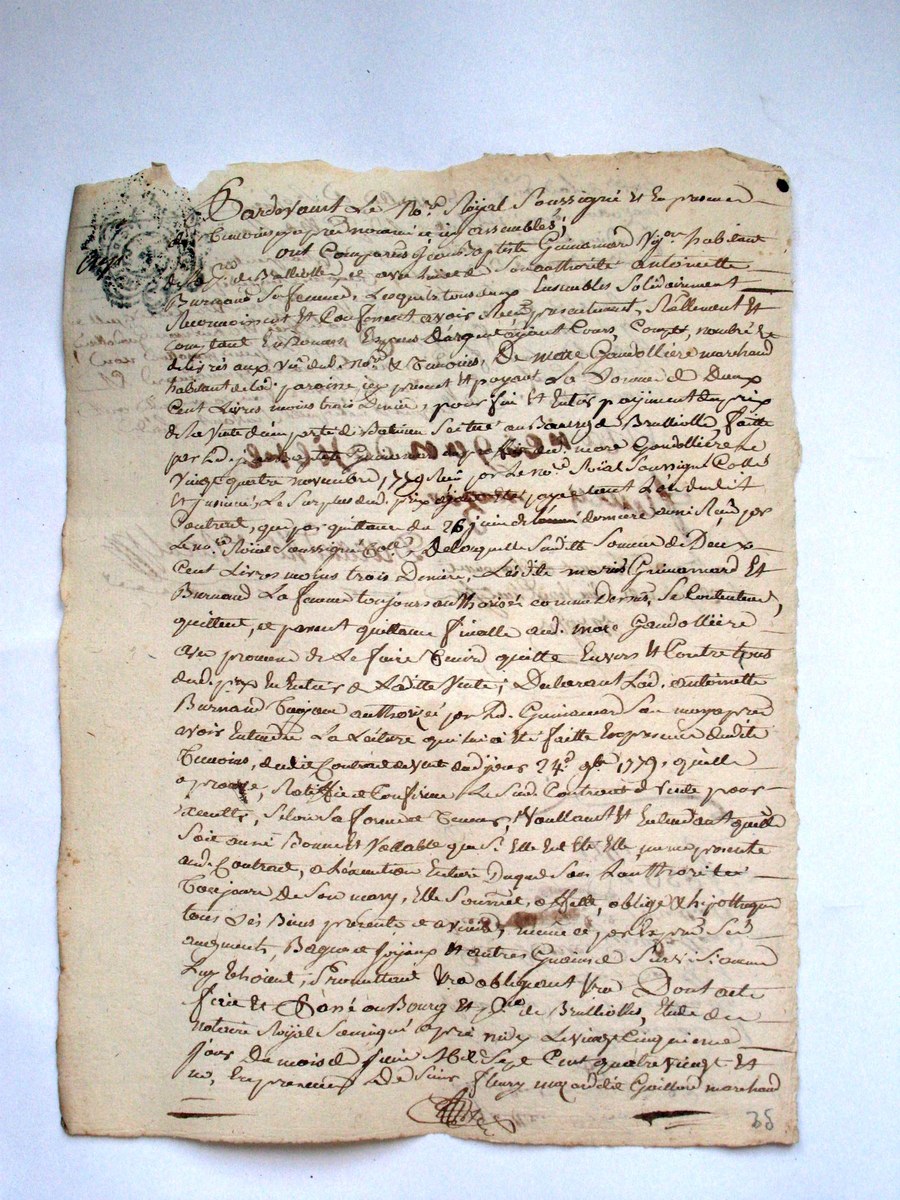 Pardevant Le No.re Royal Soussigné et En presence
des Temoins apres nommé icy assemblés,
ont Comparés Jean Baptiste Guinamard Vg.on habitant
de la de Brulliolle, et avec luy et de Son authorité antoinette
Burnand Sa femme, Lesquels tous deux Ensembles Solidairement
Reconnoissent Et Confessent avoir Receu presentement, Réellement Et
Comptant En D'argent ayant Cours, Compté, nombré Et
delivrés aux Vu dud. no.re & Temoins, De marc Gandolliere marchand
habitant de lad. paroisse icy present Et payant La Somme de Deux
Cent Livres moins trois Denier, pour fin Et Entier payement du prix
de la Vente d'une porte de Batiment Scitué au Bourg de Brulliolle, faitte
par Led. Guinamard aud. marc Gandolliere Le
Vingt quatre novembre 1779 Receu par Le no.re Roial Soussigné Collé
et insinué, Le Surplus dud. prix ayant eté payé tant Lors dudit
Contract, que par quittance du 26 juin de L'année derniere aussi Receu par
Le no.re Roial Soussigné Collé, De laquelle Susditte Somme de Deux
Cent Livres moins trois Denier, Lesdits mariés Guinamard Et
Burnand La femme toujours authorisée comme dessus, Se Contentent,
quittent, et passent quittance finalle aud. marc Gandolliere
avec promesse de Le faire Tenir quitte Envers Et Contre tous
dud. prix En Entier de Laditte Vente; Declarant Lad. antoinette
Burnand Toujours authorizée par Led. Guinamard Son mary apres
avoir Entendu La Lecture qui lui a Eté faitte En presence desdits
Temoins, dudit Contract de Vente dud. jour 24.e 9bre 1779, quelle
aprouve, Ratiffie et Confirme Le Susd. Contract de Vente pour
Executté, Selon Sa forme et Teneur, Voullant Et Entendant quil
Soit aussi Bonne Et Vallable que Si Elle Eut Eté Elle meme presente
aud. Contract, a L'execution Entiere Duquel Sous L'authorité
Toujours de Son mary, Elle Soumet, affecte, oblige & hipotteque
tous Ses Biens presents et avenir, meme ce Ses
augments, Bagues et Joyaux Et autres Gains de Survie Si aucun
Luy Echoient, Promettant Vra obligeant Vra Dont acte
fait Et Passé au Bourg Et de Brulliolles, Etude du
notaire Royal Soussigné apres midy Le Vingt Cinquieme
jour Du mois de Juin Mil Sept Cent quatre vingt Et
un, En presence De Sieur fleury Gaillard marchand
35